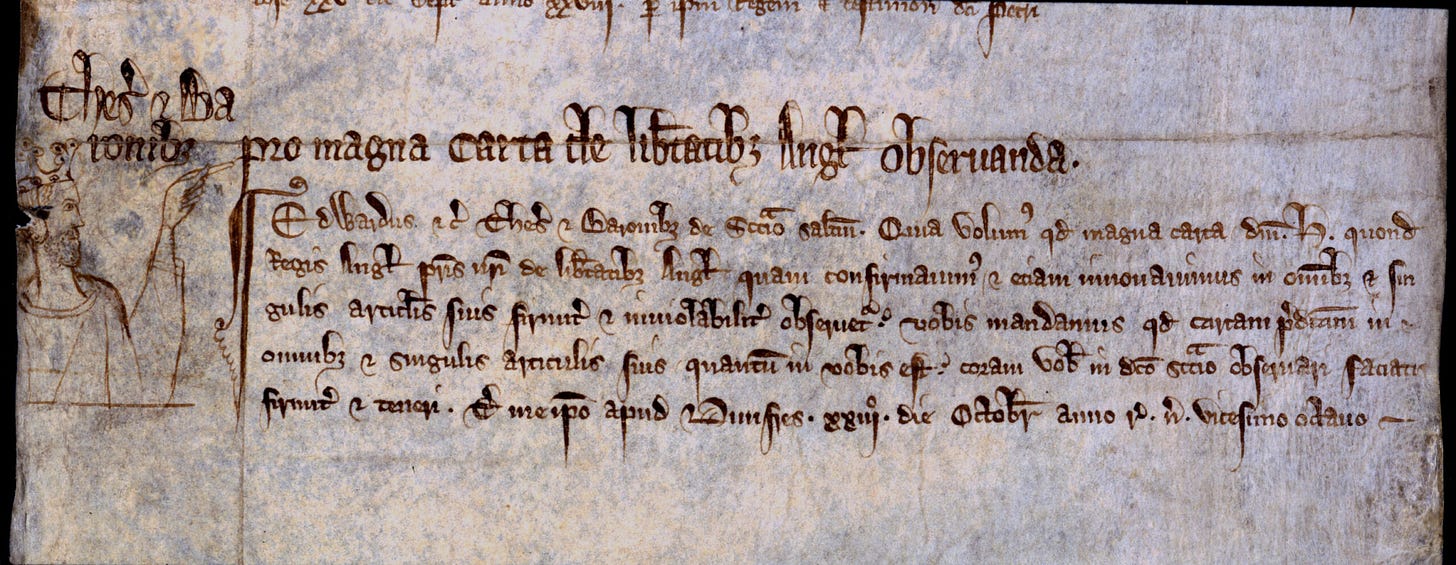 die xxv die Sept anno xxviii. p ipm Regem t testimon dci Petri
Thes' ⁊ Ba
ronibȝ pro magna Carta de lib̄tatibȝ Angł obseruanda.
Edwardus ⁊c̃ Thes' ⁊ Baronibȝ de Sccᵃio saltm̄. Quia volumꝰ qd magna carta dn̄i. H. quond
Regis Angł pr̄is nr̄i de lib̄tatibȝ Angł quam confirmauimꝰ ⁊ eciam innouauimus in om̄ibȝ ⁊ sin
gulis articl̄is suis firmit' ⁊ inuiolabilit' obseruetᵘʳ. vobis mandamus qd cartam p̄dc̄am in
omnibȝ ⁊ singulis articulis suis quantū in vobis est. coram vob̄ in dc̄o sccᵃio obseruari faciatis
firmit' ⁊ teneri. T̄ me ip̄o apud Dunfres. xxiiiᵒ. die Octobr̄ anno r̄. n̄. vicesimo octauo